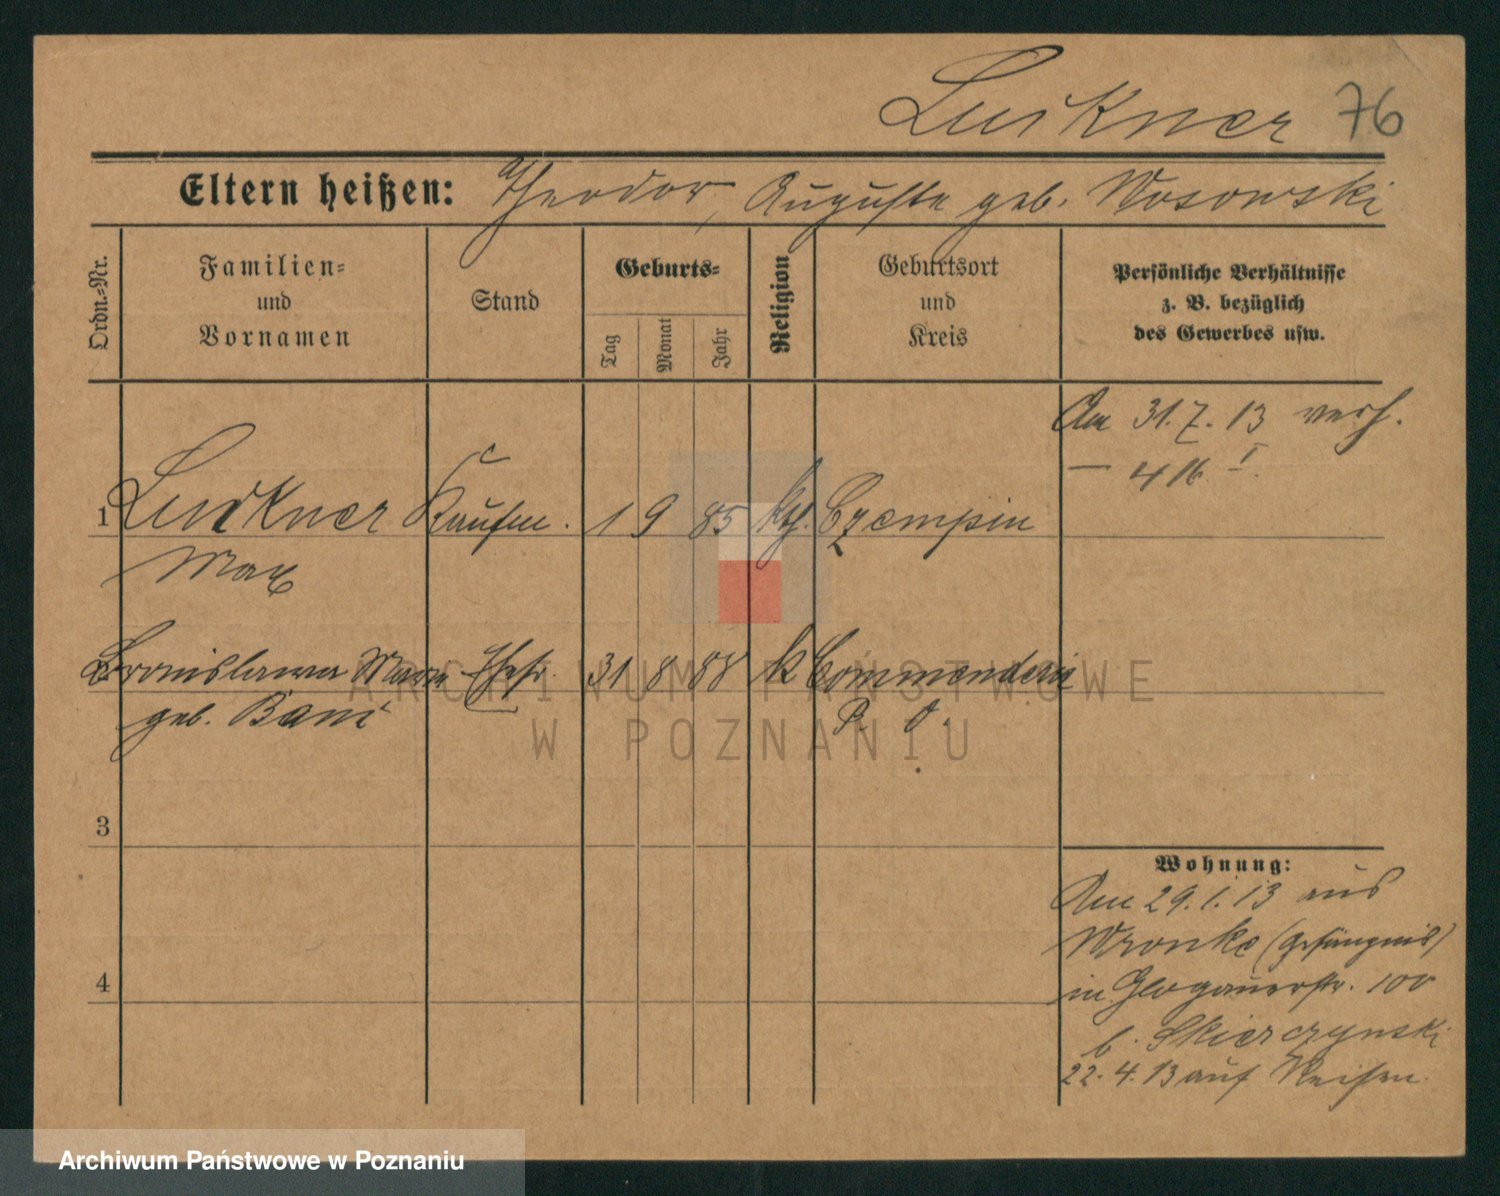 Luckner 76
Eltern heißen: Theodor, Auguste geb. Wosowski
Ordn.-Nr.
Familien-
und
Vornamen
Stand
Geburts-
Tag
Monat
Jahr
Religion
Geburtsort
und
Kreis
Persönliche Verhältnisse
z. B. bezüglich
des Gewerbes usw.
Am 31.7.13 verh.
1 Luckner Kaufm. 1 9 85 kth. Czempin
Max
Bronislawa Maria Ehefr. 31 8 88 k Commenderie
geb. Bani P. O.
3
4
Wohnung:
Am 29.1.13 aus
Wronke (Gefängnis)
in Glogauerstr. 100
b. Skierczynski
22.4.13 auf Reisen.
ARCHIWUM PAŃSTWOWE
W POZNANIU
Archiwum Państwowe w Poznaniu